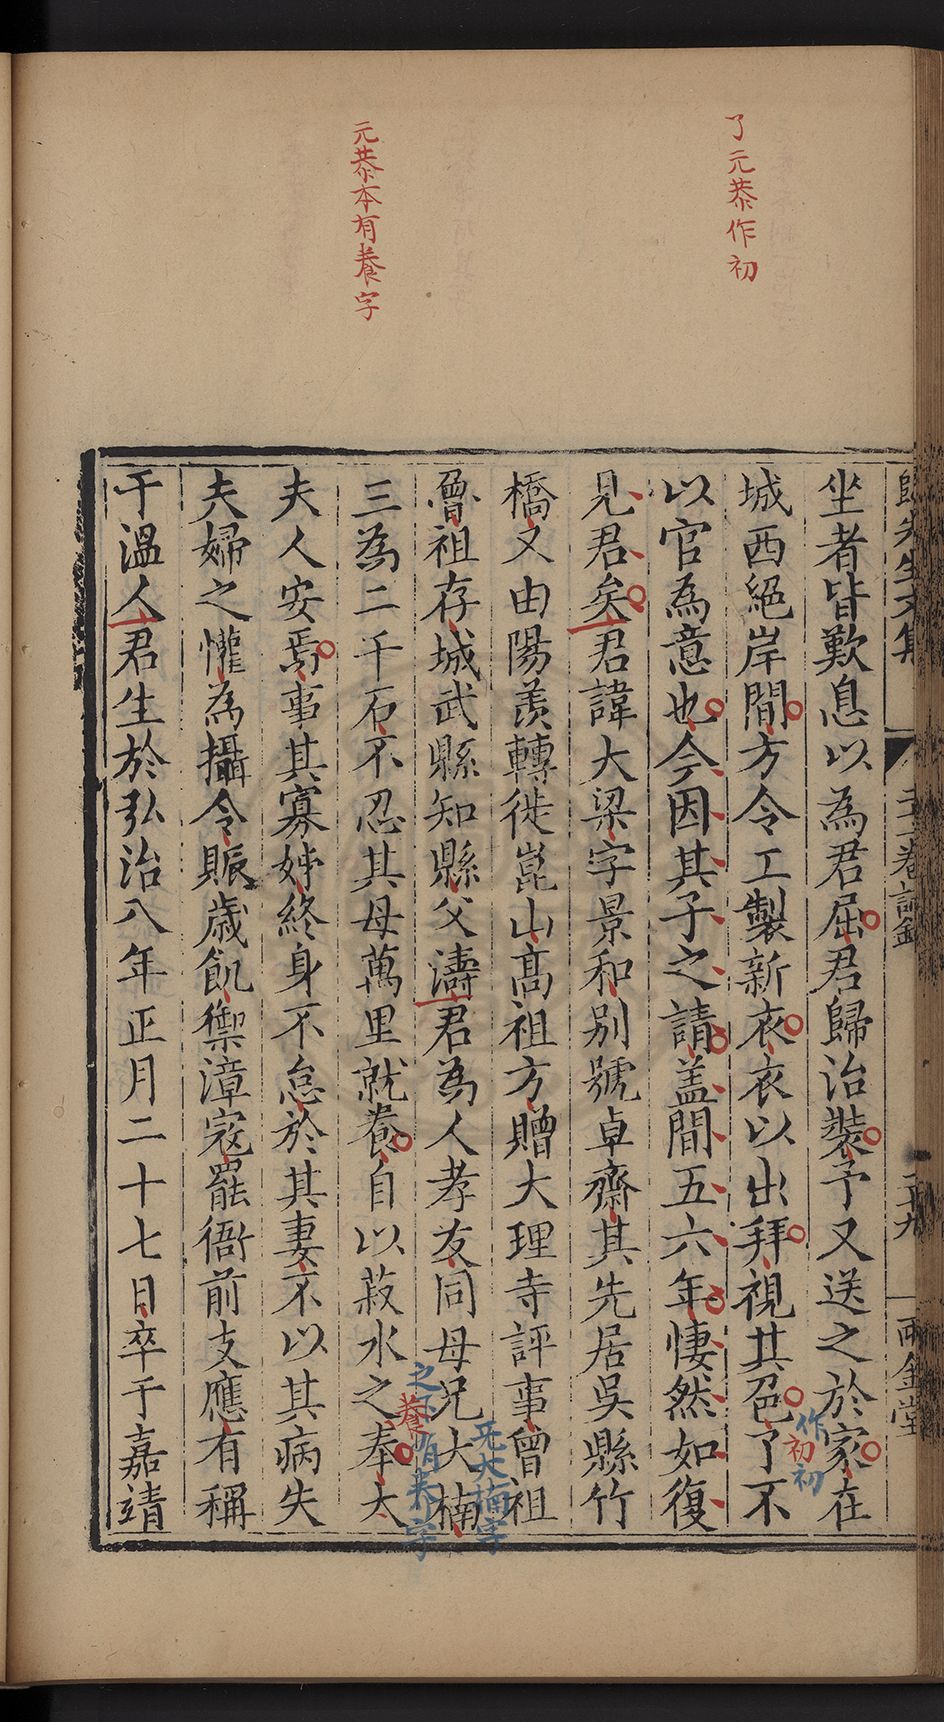 了元恭作初
元恭本有養字
歸先生文集
二十一卷誌銘
二十九
雨金堂
坐者皆歎息以為君屈君歸治裝予又送之於家在
城西絕岸間方令工製新衣衣以出拜視其色了不
作初
初
以官為意也今因其子之請蓋間五六年悽然如復
見君矣君諱大梁字景和別號卓齋其先居吳縣竹
橋又由陽羨轉徙崑山高祖方贈大理寺評事曾祖
魯祖存城武縣知縣父濤君為人孝友同母兄大楠
三為二千石不忍其母萬里就養自以菽水之奉太
養
夫人安焉事其寡姊終身不怠於其妻不以其病失
夫婦之懽為攝令賑歲飢禦漳寇罷衙前支應有稱
干溫人君生於弘治八年正月二十七日卒于嘉靖